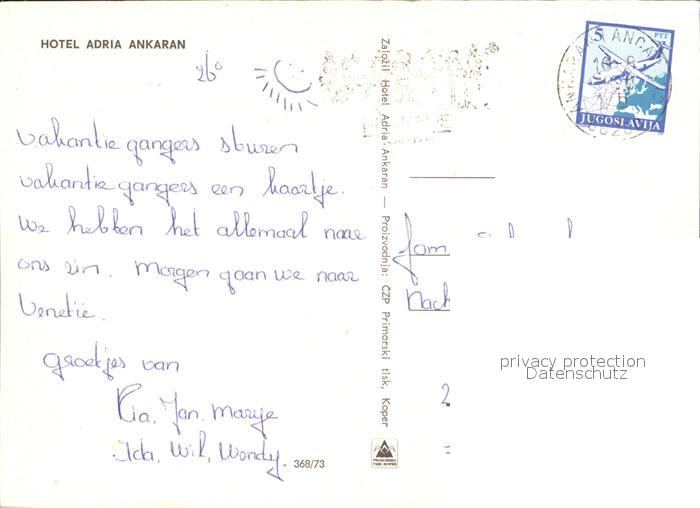 HOTEL ADRIA ANKARAN
26°
vakantie gangers sturen
vakantie gangers een kaartje.
We hebben het allemaal naar
ons zin. Morgen gaan we naar
Venetië.
Groetjes van
Ria, Jan, Marije
Ida, Wil, Wendy.
368/73
Založil Hotel Adria Ankaran — Proizvodnja: ČZP Primorski tisk, Koper
5 PTT
JUGOSLAVIJA
Fam
privacy protection
Datenschutz
2